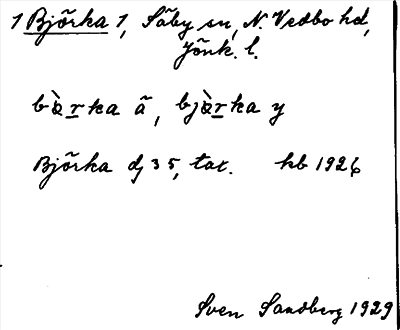 1 Björka 1, Säby sn, N. Vedbo hd,
Jönk. l.
bœ̀rka ä, bjœ̀rka y
Björka dj 35, tax. hb 1926
Sven Sandberg 1929